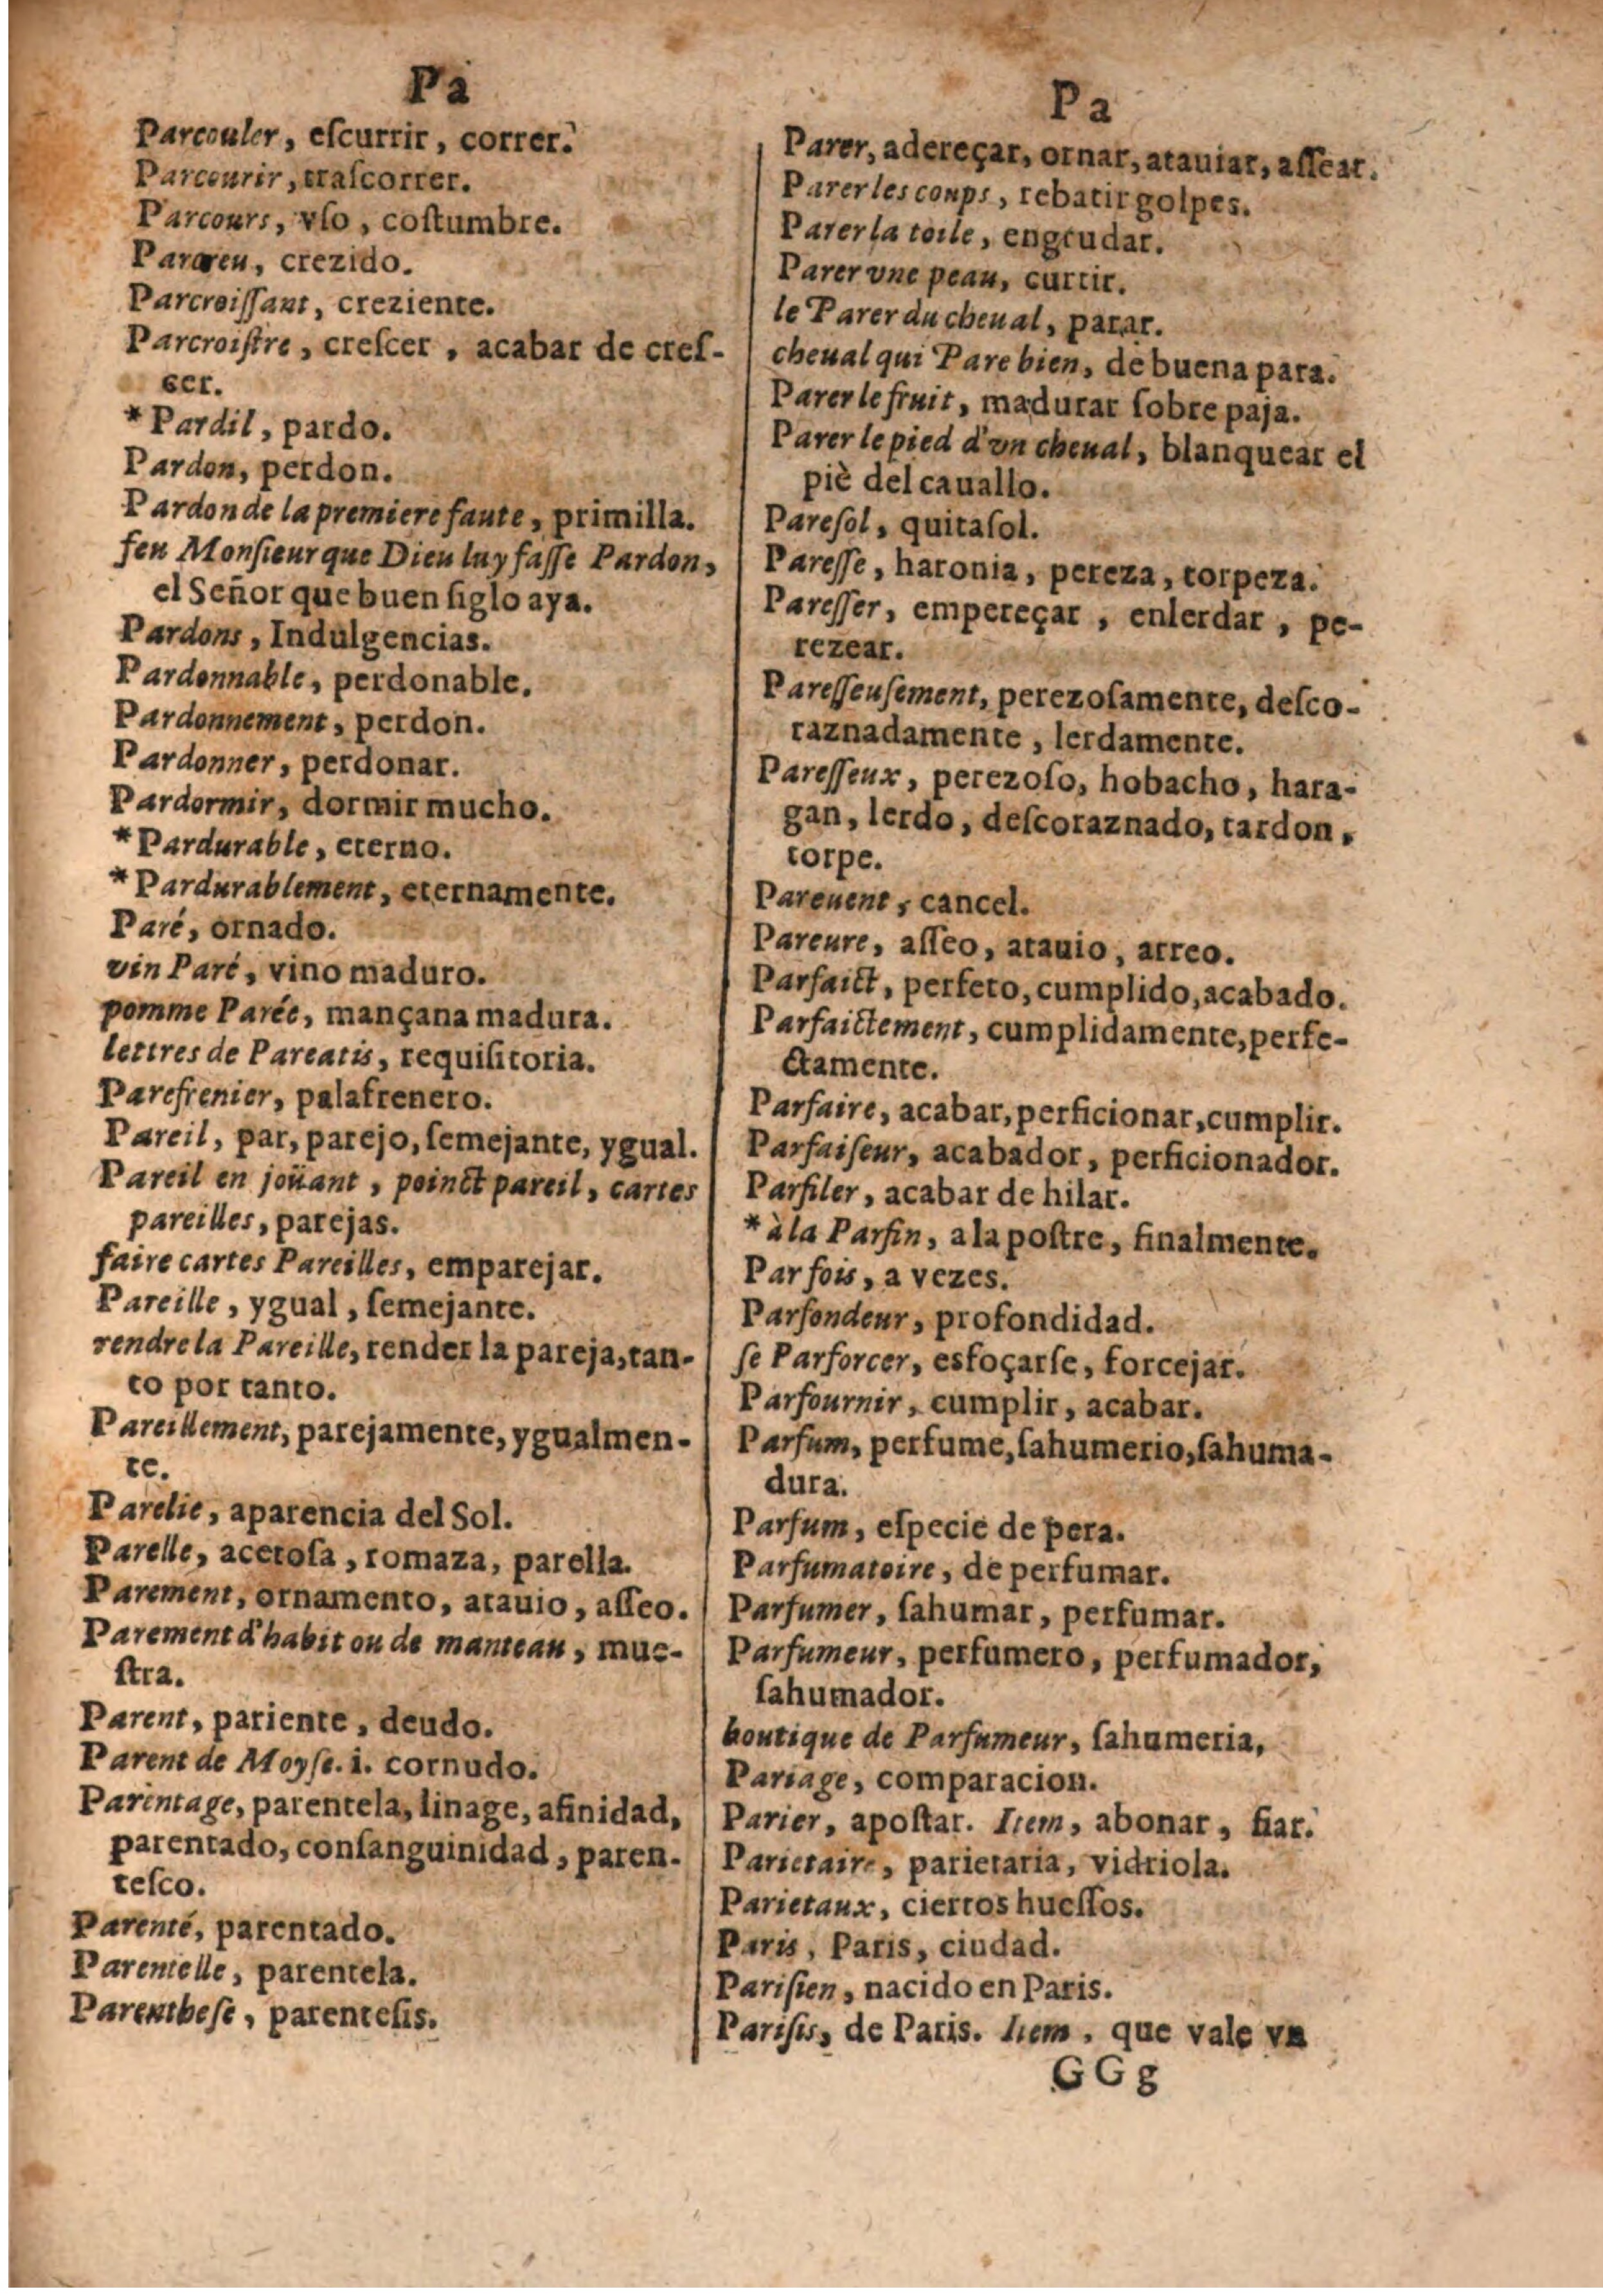 Pa
Parcouler, eſcurrir, correr.
Parcourir, traſcorrer.
Parcours, vſo, coſtumbre.
Parcreu, crezido.
Parcroiſſant, creziente.
Parcroiſtre, creſcer, acabar de creſ-
cer.
*Pardil, pardo.
Pardon, perdon.
Pardon de la premiere faute, primilla.
feu Monſieur que Dieu luy faſſe Pardon,
el Señor que buen ſiglo aya.
Pardons, Indulgencias.
Pardonnable, perdonable.
Pardonnement, perdon.
Pardonner, perdonar.
Pardormir, dormir mucho.
*Pardurable, eterno.
*Pardurablement, eternamente.
Paré, ornado.
vin Paré, vino maduro.
pomme Parée, mançana madura.
lettres de Pareatis, requiſitoria.
Parefrenier, palafrenero.
Pareil, par, parejo, ſemejante, ygual.
Pareil en joüant, poinct pareil, cartes
pareilles, parejas.
faire cartes Pareilles, emparejar.
Pareille, ygual, ſemejante.
rendre la Pareille, render la pareja, tan-
to por tanto.
Pareillement, parejamente, ygualmen-
te.
Parelie, aparencia del Sol.
Parelle, acetoſa, romaza, parella.
Parement, ornamento, atauio, aſſeo.
Parement d'habit ou de manteau, mue-
ſtra.
Parent, pariente, deudo.
Parent de Moyſe. i. cornudo.
Parentage, parentela, linage, afinidad,
parentado, conſanguinidad, paren-
teſco.
Parenté, parentado.
Parentelle, parentela.
Parentheſe, parenteſis.
Pa
Parer, adereçar, ornar, atauiar, aſſear.
Parer les coups, rebatir golpes.
Parer la toile, engrudar.
Parer vne peau, curtir.
le Parer du cheual, parar.
cheual qui Pare bien, de buena para.
Parer le fruit, madurar ſobre paja.
Parer le pied d'vn cheual, blanquear el
piè del cauallo.
Pareſol, quitaſol.
Pareſſe, haronia, pereza, torpeza.
Pareſſer, empereçar, enlerdar, pe-
rezear.
Pareſſeuſement, perezoſamente, deſco-
raznadamente, lerdamente.
Pareſſeux, perezoſo, hobacho, hara-
gan, lerdo, deſcoraznado, tardon,
torpe.
Pareuent, cancel.
Pareure, aſſeo, atauio, arreo.
Parfaict, perfeto, cumplido, acabado.
Parfaictement, cumplidamente, perfe-
ctamente.
Parfaire, acabar, perficionar, cumplir.
Parfaiſeur, acabador, perficionador.
Parfiler, acabar de hilar.
*à la Parfin, a la poſtre, finalmente.
Par fois, a vezes.
Parfondeur, profondidad.
ſe Parforcer, esfoçarſe, forcejar.
Parfournir, cumplir, acabar.
Parfum, perfume, ſahumerio, ſahuma-
dura.
Parfum, eſpecie de pera.
Parfumatoire, de perfumar.
Parfumer, ſahumar, perfumar.
Parfumeur, perfumero, perfumador,
ſahumador.
boutique de Parfumeur, ſahumeria,
Pariage, comparacion.
Parier, apoſtar. Item, abonar, fiar.
Parietaire, parietaria, vidriola.
Parietaux, ciertos hueſſos.
Paris, Paris, ciudad.
Pariſien, nacido en Paris.
Pariſis, de Paris. Item, que vale vn
GGg